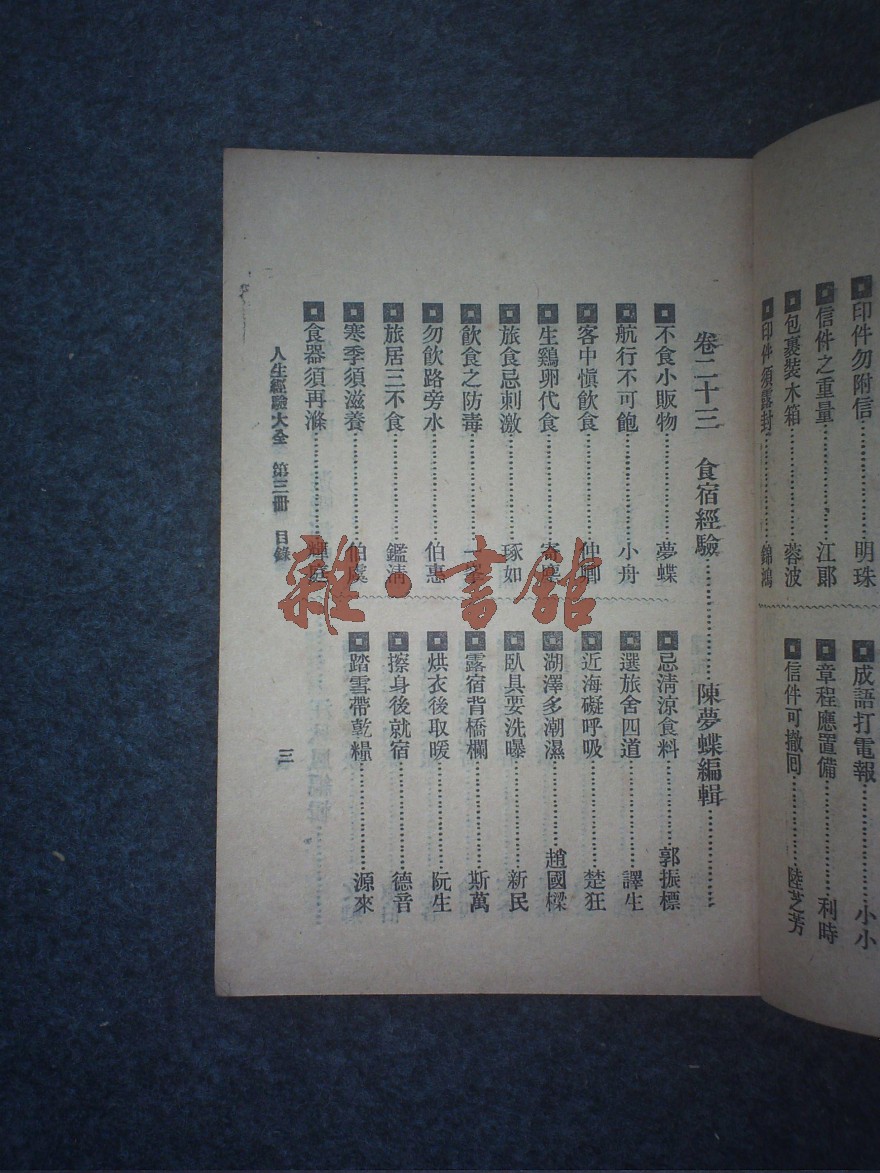 印件勿附信……明珠
信件之重量……江郎
包裹裝木箱……蓉波
印件須露封……錦鴻
成語打電報……小小
章程應置備……利時
信件可撤回……陸芝芳
卷二十三 食宿經驗……陳夢蝶編輯……
不食小販物……夢蝶
航行不可飽……小舟
客中慎飲食……仲卿
生鷄卵代食……寄塵
旅食忌刺激……琢如
飲食之防毒……一
勿飲路旁水……伯惠
旅居三不食……鑑清
寒季須滋養……伯虞
食器須再滌……輝庭
忌清涼食料……郭振標
選旅舍四道……譯生
近海礙呼吸……楚狂
湖澤多潮濕……趙國樑
臥具要洗曝……新民
露宿背橋欄……斯萬
烘衣後取暖……阮生
擦身後就宿……德音
踏雪帶乾糧……源來
人生經驗大全 第三冊 目錄
三
雜·書館